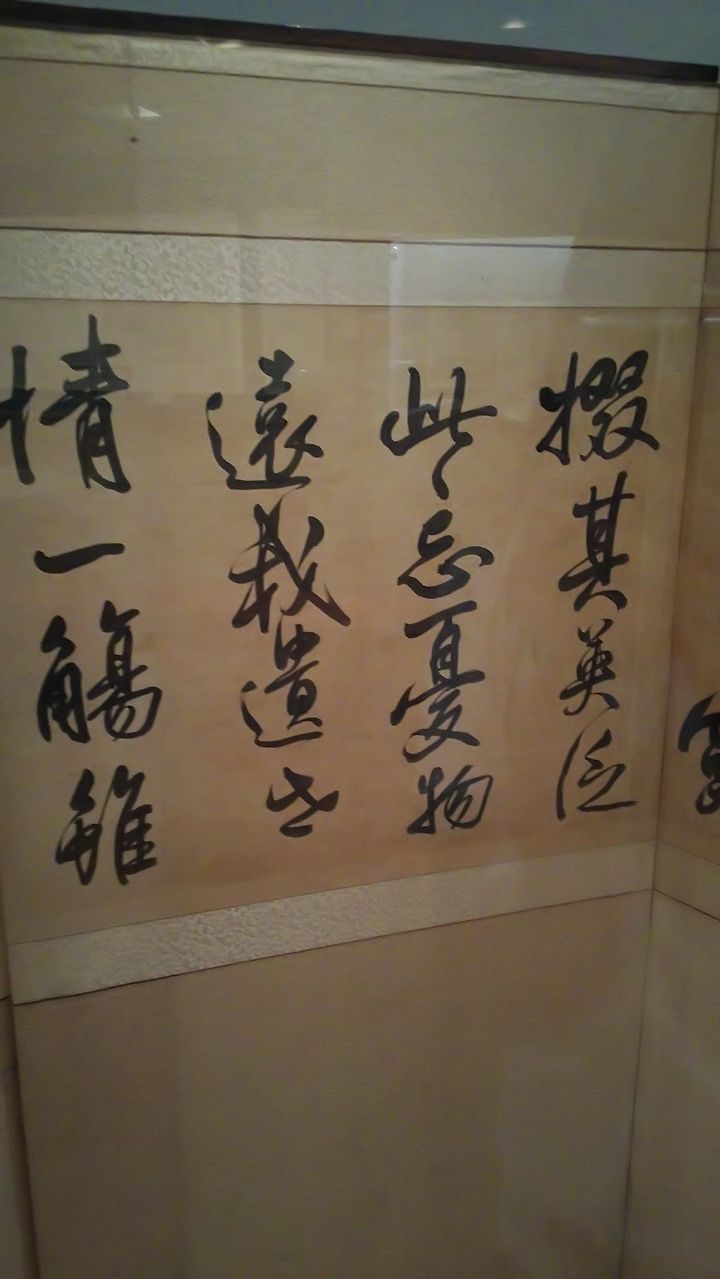 掇其英泛
此忘憂物
遠我遺世
情一觴雖